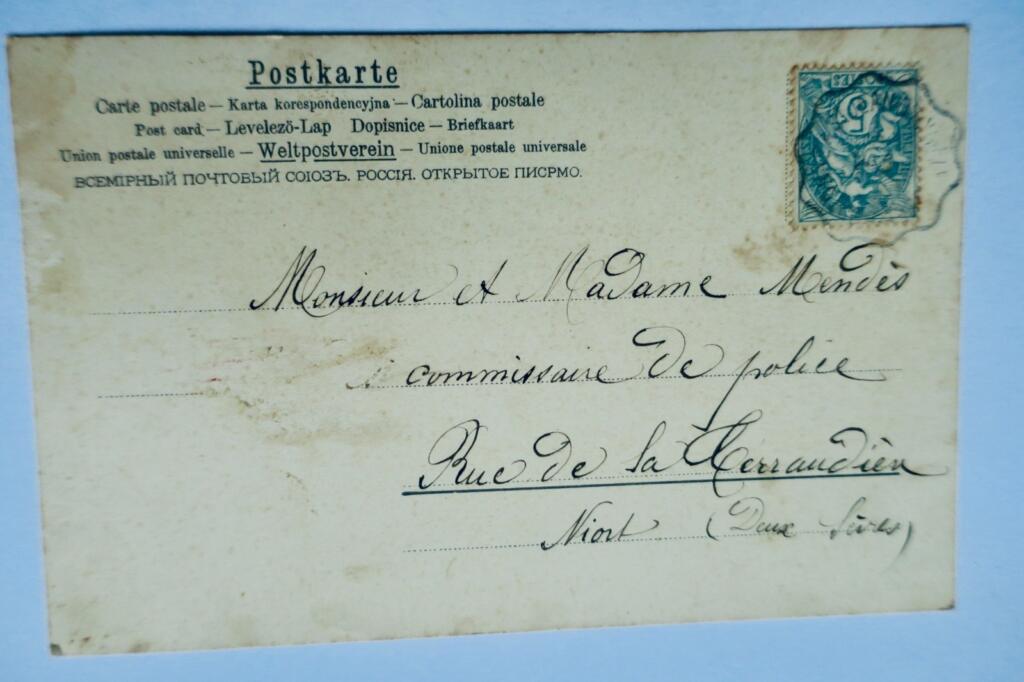 Postkarte
Carte postale – Karta korespondencyjna – Cartolina postale
Post card – Levelező-Lap Dopisnice – Briefkaart
Union postale universelle – Weltpostverein – Unione postale universale
ВСЕМІРНЫЙ ПОЧТОВЫЙ СОЮЗЪ. РОССІЯ. ОТКРЫТОЕ ПИСРМО.
5
Monsieur et Madame Mendès
commissaire de police
Rue de la Terraudière
Niort (Deux Sèvres)